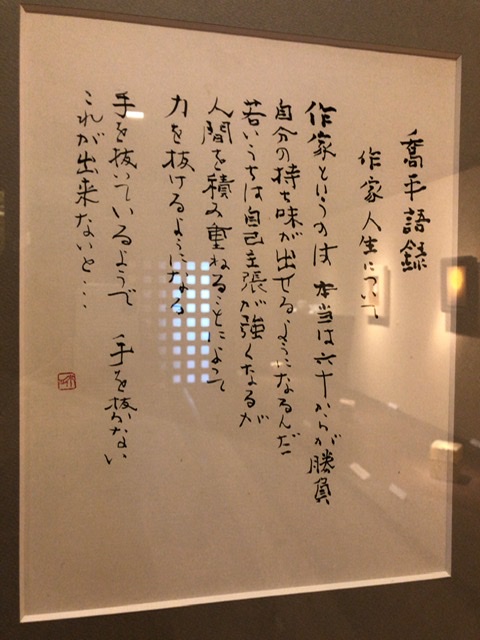 喬平語録
作家人生について
作家というのは 本当は六十からが勝負
自分の持ち味が出せるようになるんだ
若いうちは自己主張が強くなるが
人間を積み重ねることによって
力を抜けるようになる
手を抜いているようで 手を抜かない
これが出来ないと・・・